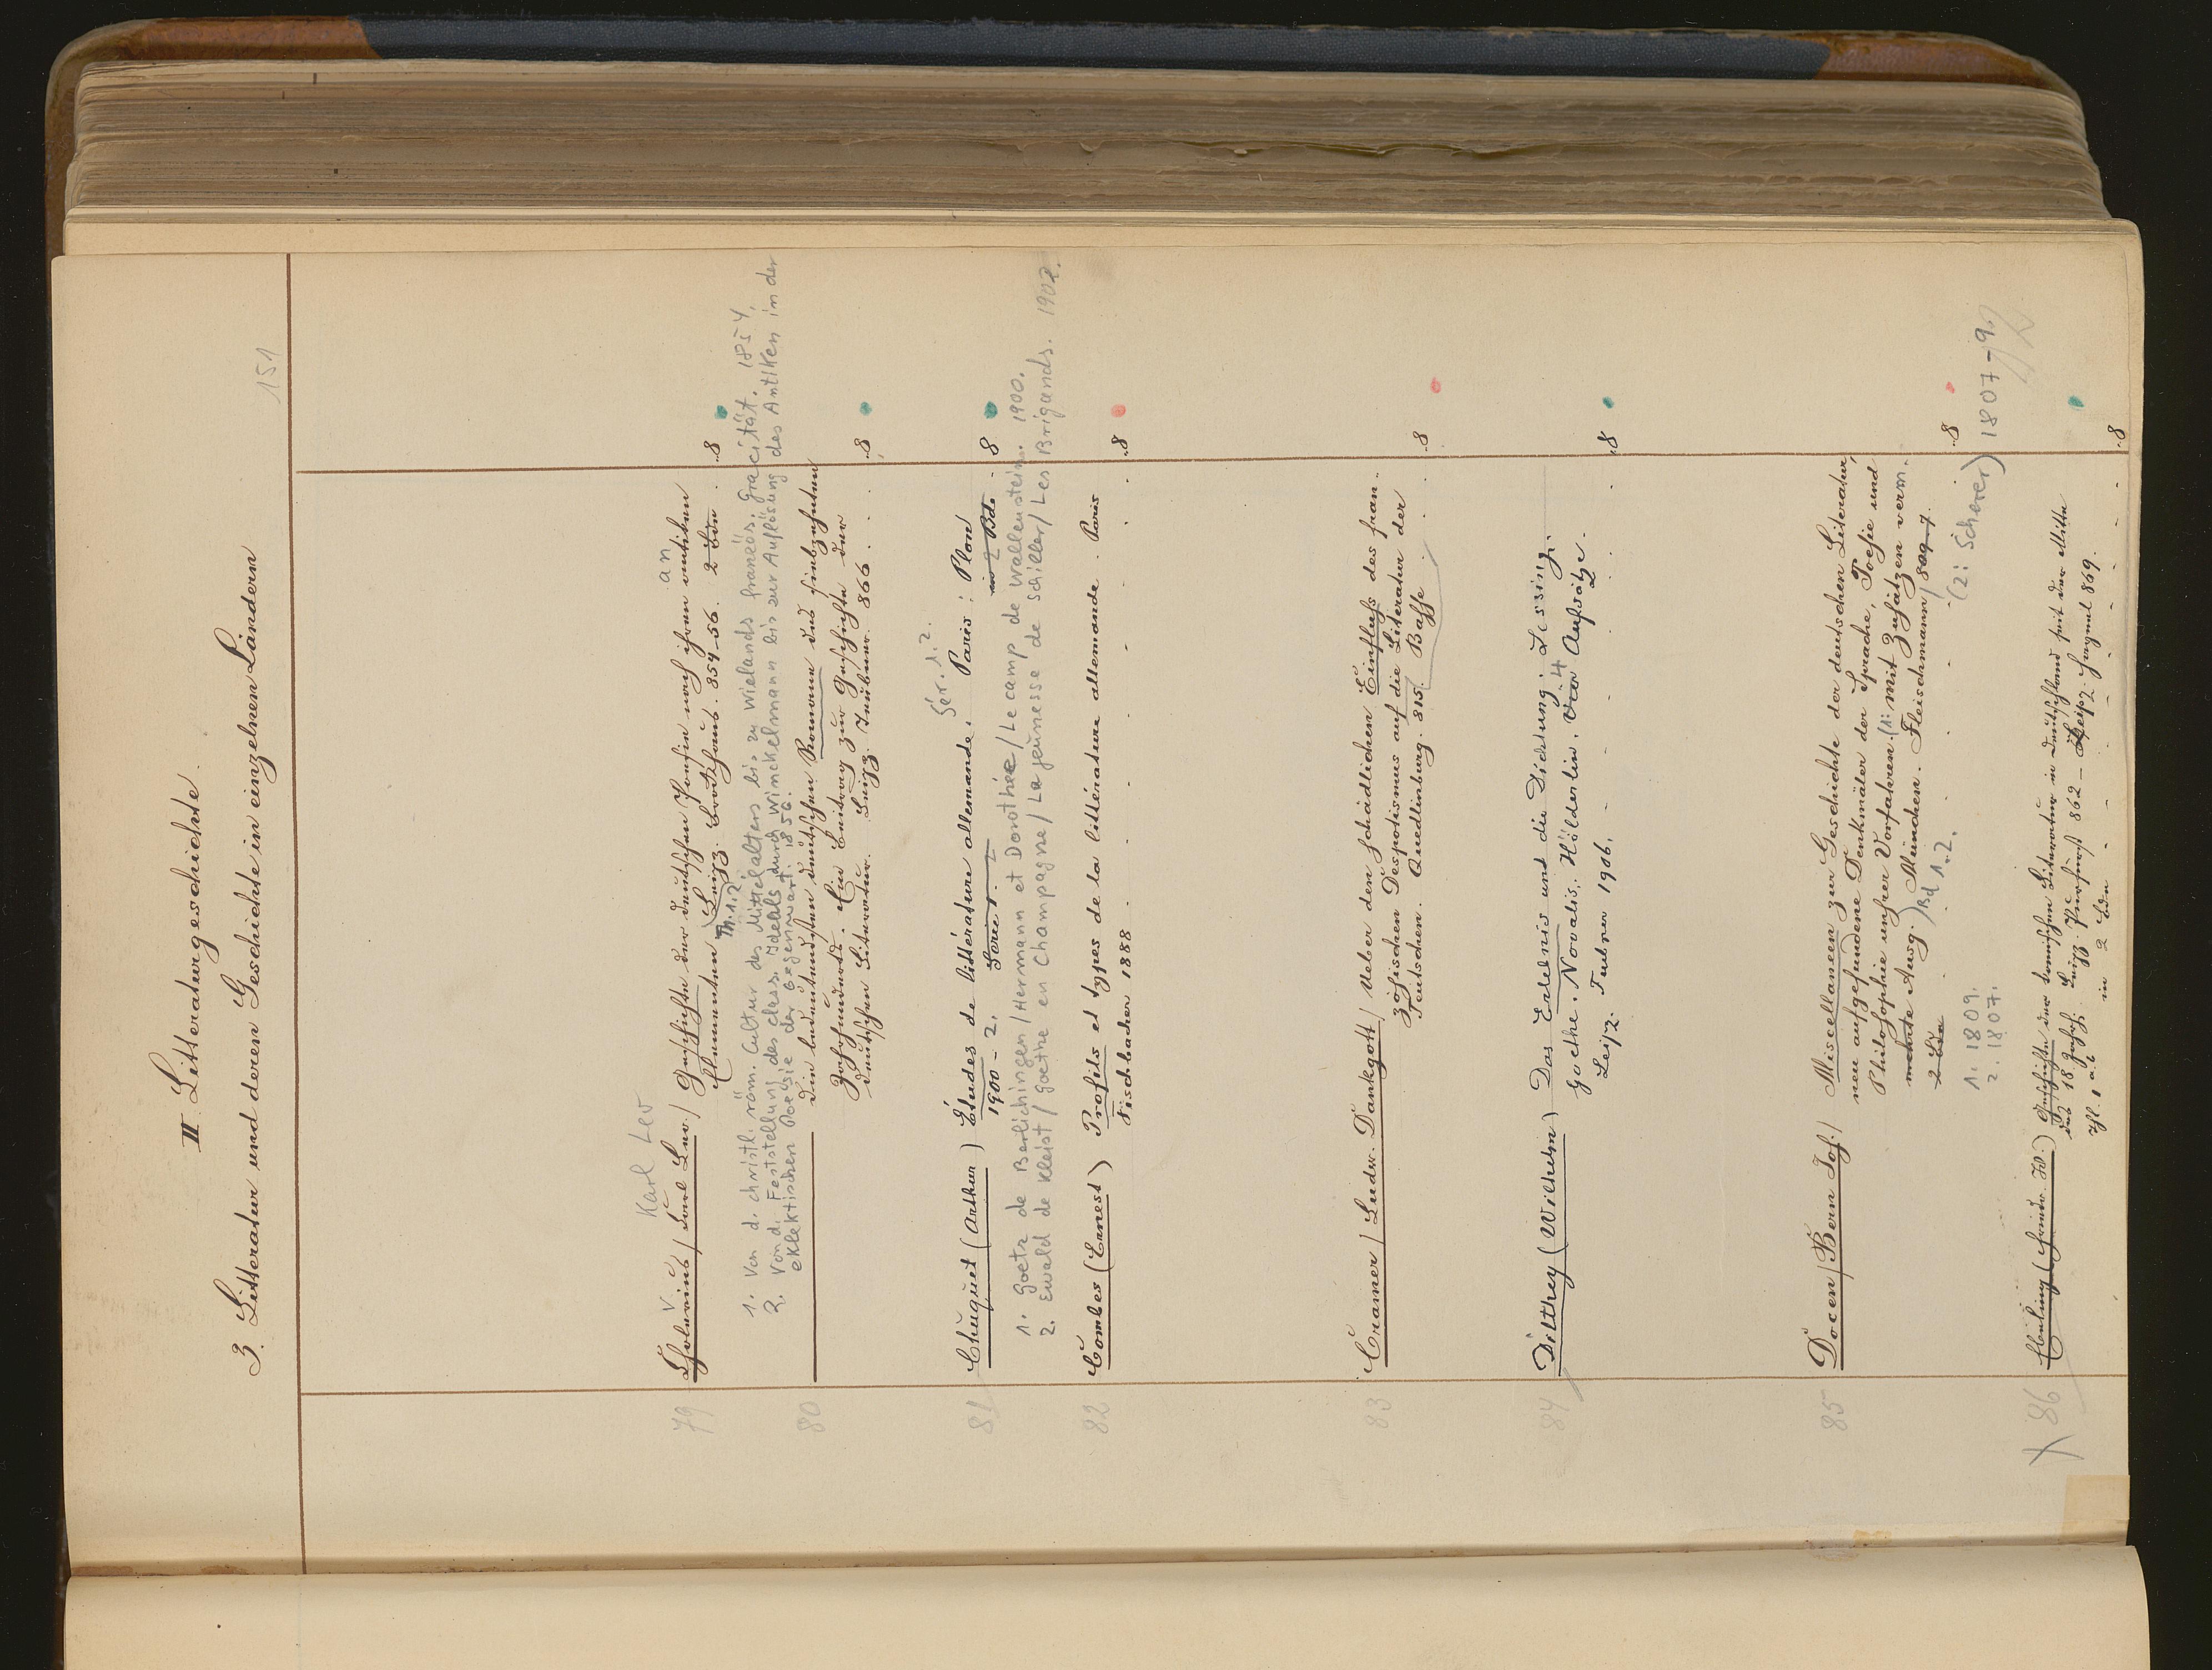 II. Litteraturgeschichte.
3. Litteratur und deren Geschichte in einzelnen Ländern
151
Karl Lev
an
79 Cholevius (Carl Leo.) Geschichte der deutschen Poesie nach ihren antiken
Elementen. Leipz. Brockhaus. 854-56. 2 Bde . 8
Th. 1.2
1. Von d. christl. röm. Cultur des Mittelalters bis zu Wielands französ. Gräcität. 1854.
2. Von d. Feststellung des class. Ideals durch Winckelmann bis zur Auflösung des Antiken in der
eklektischen Poesie der Gegenwart. 1856.
80 Die bedeutendsten deutschen Romane des siebzehnten
Jahrhunderts. Ein Beitrag zur Geschichte der
deutschen Literatur. Leipz. Teubner. 866 . . 8
Sér. 1.2.
81 Chuquet (Arthur) Études de littérature allemande. Paris: Plon
1900-2. Serie 1. 2 in 2 Bde . 8
1. Goetz de Berlichingen/Hermann et Dorothée/Le camp de Wallenstein. 1900.
2. Ewald de Kleist/Goethe en Champagne/La jeunesse de Schiller/Les Brigands. 1902.
82 Combes (Ernest) Profils et types de la littérature allemande. Paris
Fischbacher 1888 . . . . 8
83 Cramer (Ludw. Dankgott) Ueber den schädlichen Einfluß des fran-
zösischen Despotismus auf die Literatur der
Teutschen. Quedlinburg. 815. Basse . . 8
84 Dilthey (Wilhelm) Das Erlebnis und die Dichtung. Lessing.
Goethe. Novalis. Hölderlin. Vier Aufsätze.
4
Leipz. Teubner 1906. . . . 8
85 Docen (Bern Jos.) Miscellaneen zur Geschichte der deutschen Literatur,
neu aufgefundene Denkmäler der Sprache, Poesie und
Philosophie unsrer Vorfahren. (1: Mit Zusätzen verm.
mehrte Ausg.) Bd 1.2. München. Fleischmann 809-7.
2 Bde . . . . 8
(2: Scherer) 1807-9.
1. 1809.
2. 1807.
86 Ebeling (Friedr. W.) Geschichte der komischen Literatur in Deutschland seit der Mitte
des 18. Jahrh. Leipz. 862 - Leipz. 869.
Th. 1 in 2 Bde . . . . 8